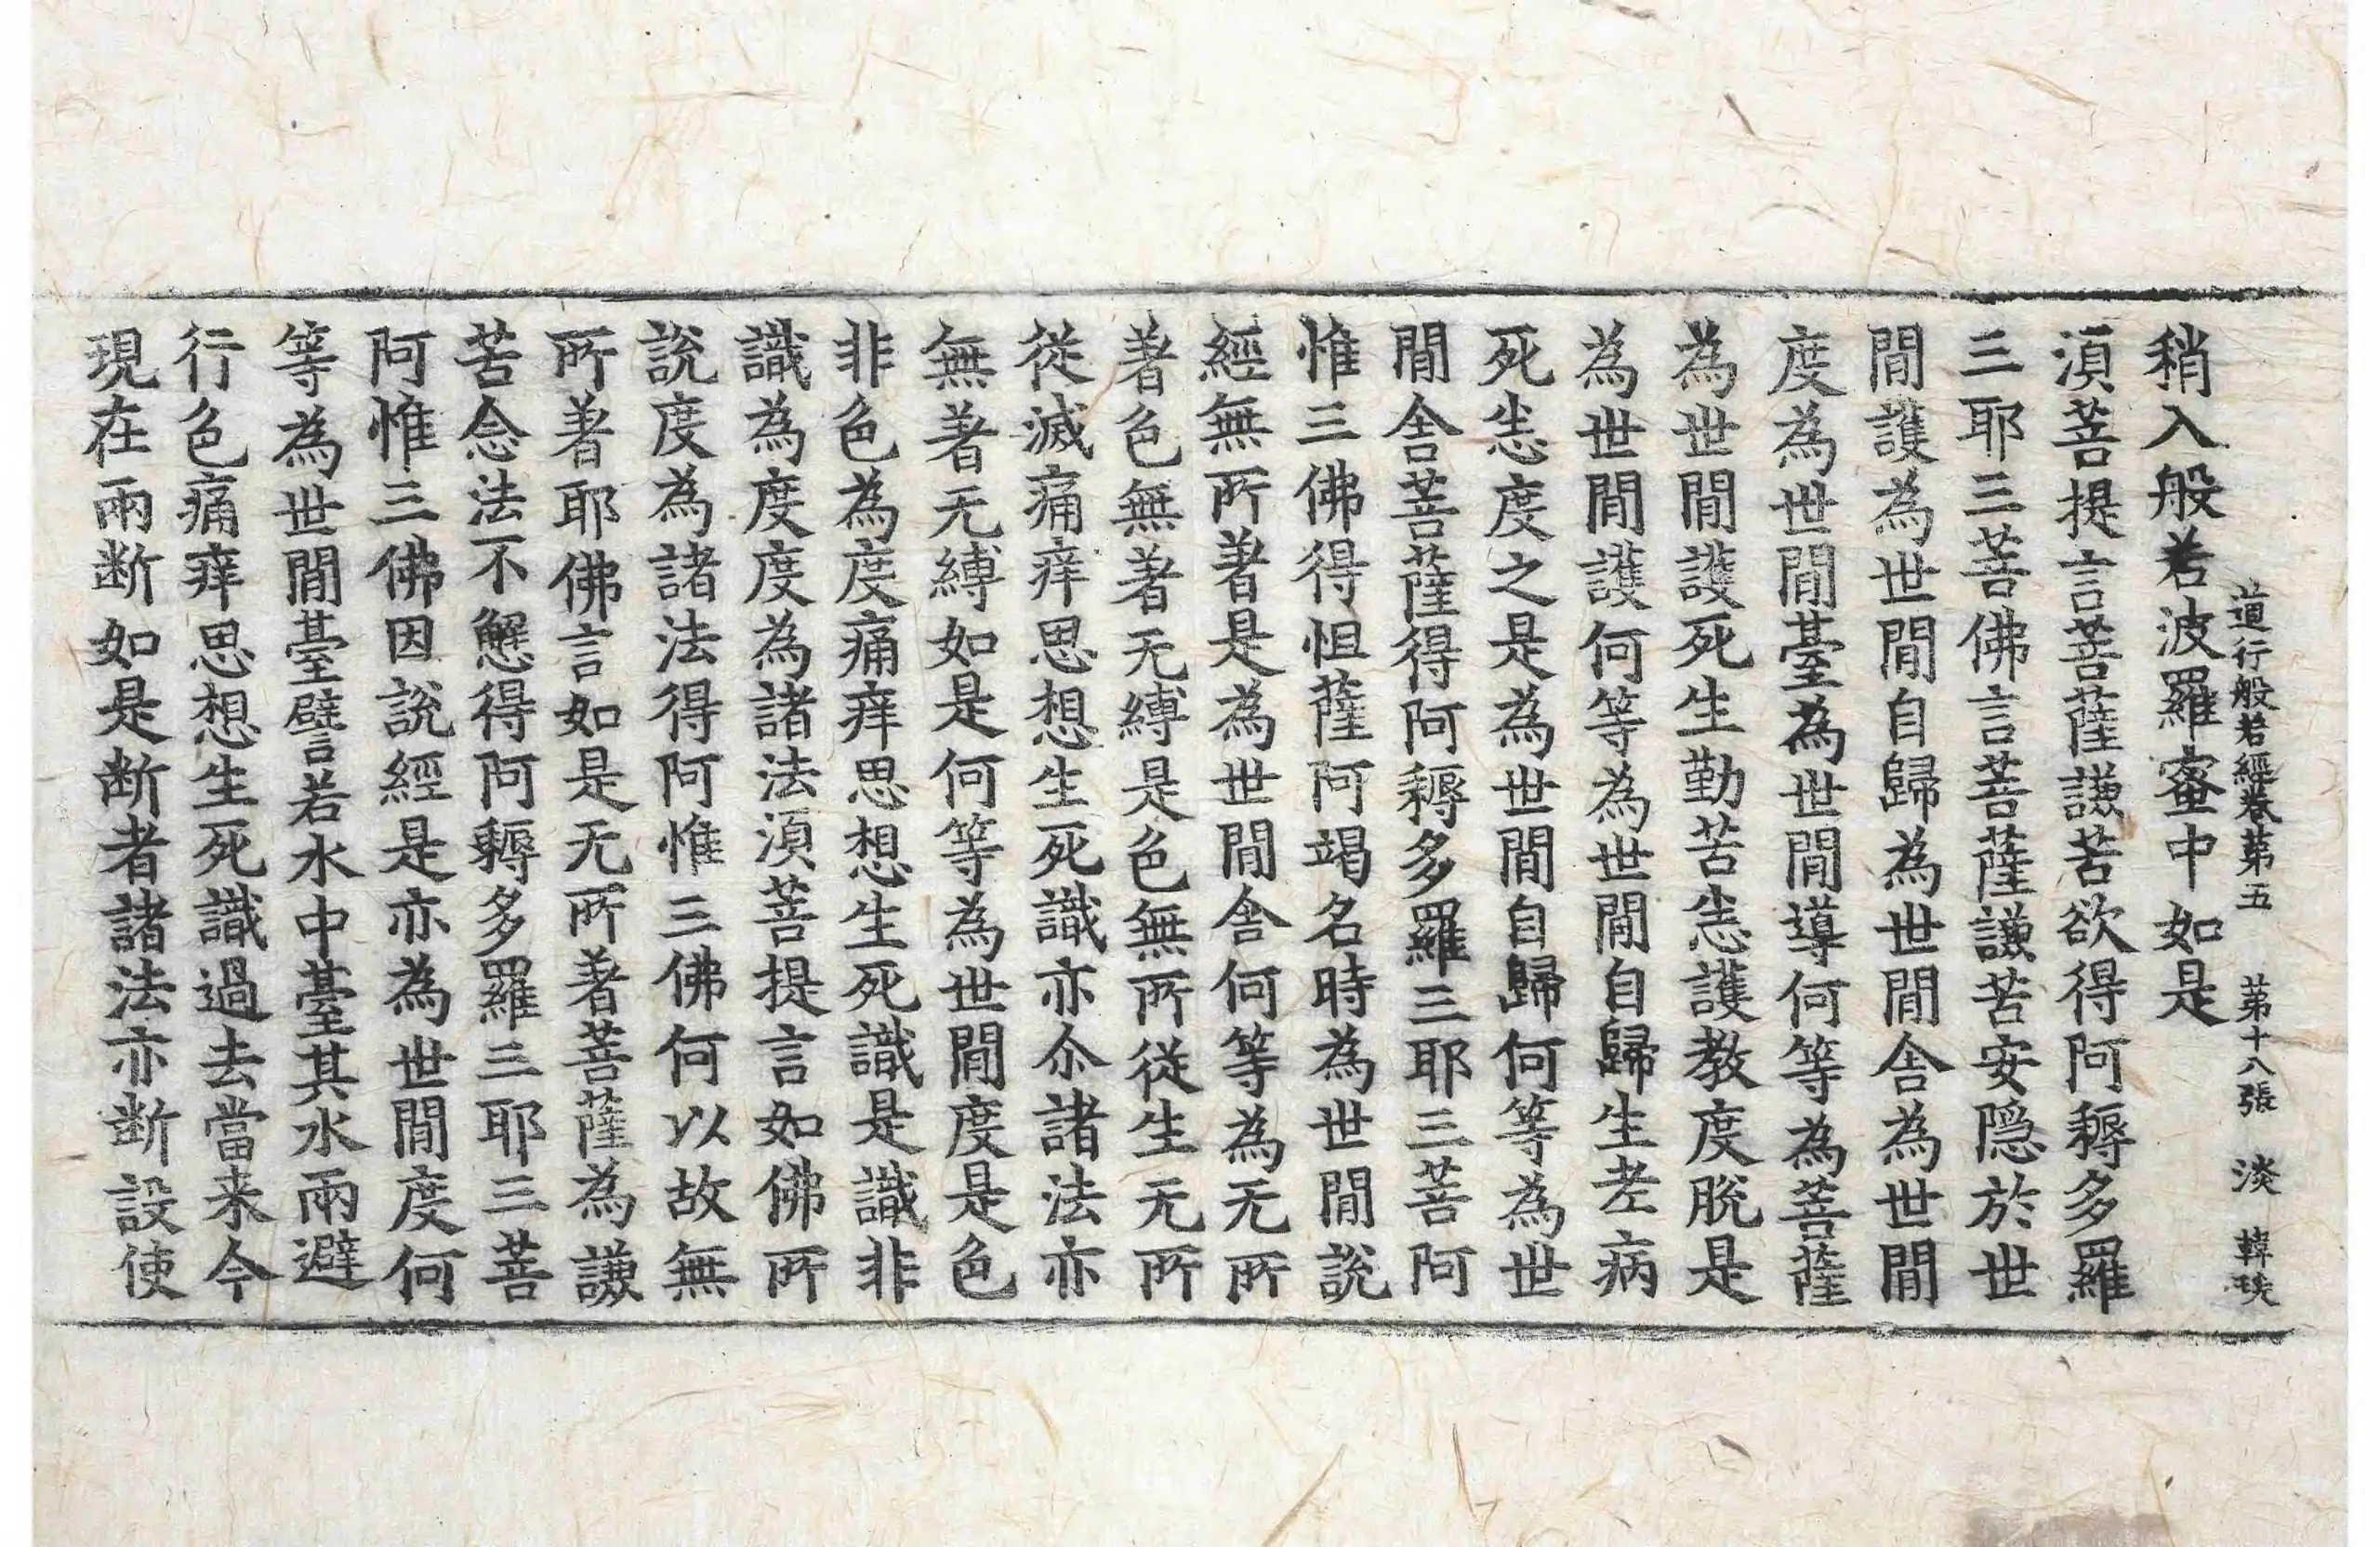 道行般若經卷第五 第十八張 淡 韓琰
稍入般若波羅蜜中如是
湏菩提言菩薩謙苦欲得阿耨多羅
三耶三菩佛言菩薩謙苦安隱於世
閒護為世閒自歸為世閒舍為世閒
度為世閒臺為世閒導何等為菩薩
為世閒護死生勤苦恙護教度脫是
為世閒護何等為世閒自歸生老病
死恙度之是為世閒自歸何等為世
閒舍菩薩得阿耨多羅三耶三菩阿
惟三佛得怛薩阿竭名時為世閒說
經無所著是為世閒舍何等為无所
著色無著无縛是色無所從生无所
從滅痛痒思想生死識亦尒諸法亦
無著无縛如是何等為世閒度是色
非色為度痛痒思想生死識是識非
識為度度為諸法湏菩提言如佛所
說度為諸法得阿惟三佛何以故無
所著耶佛言如是无所著菩薩為謙
苦念法不懈得阿耨多羅三耶三菩
阿惟三佛因說經是亦為世閒度何
等為世閒臺譬若水中臺其水兩避
行色痛痒思想生死識過去當来今
現在兩断如是断者諸法亦断設使